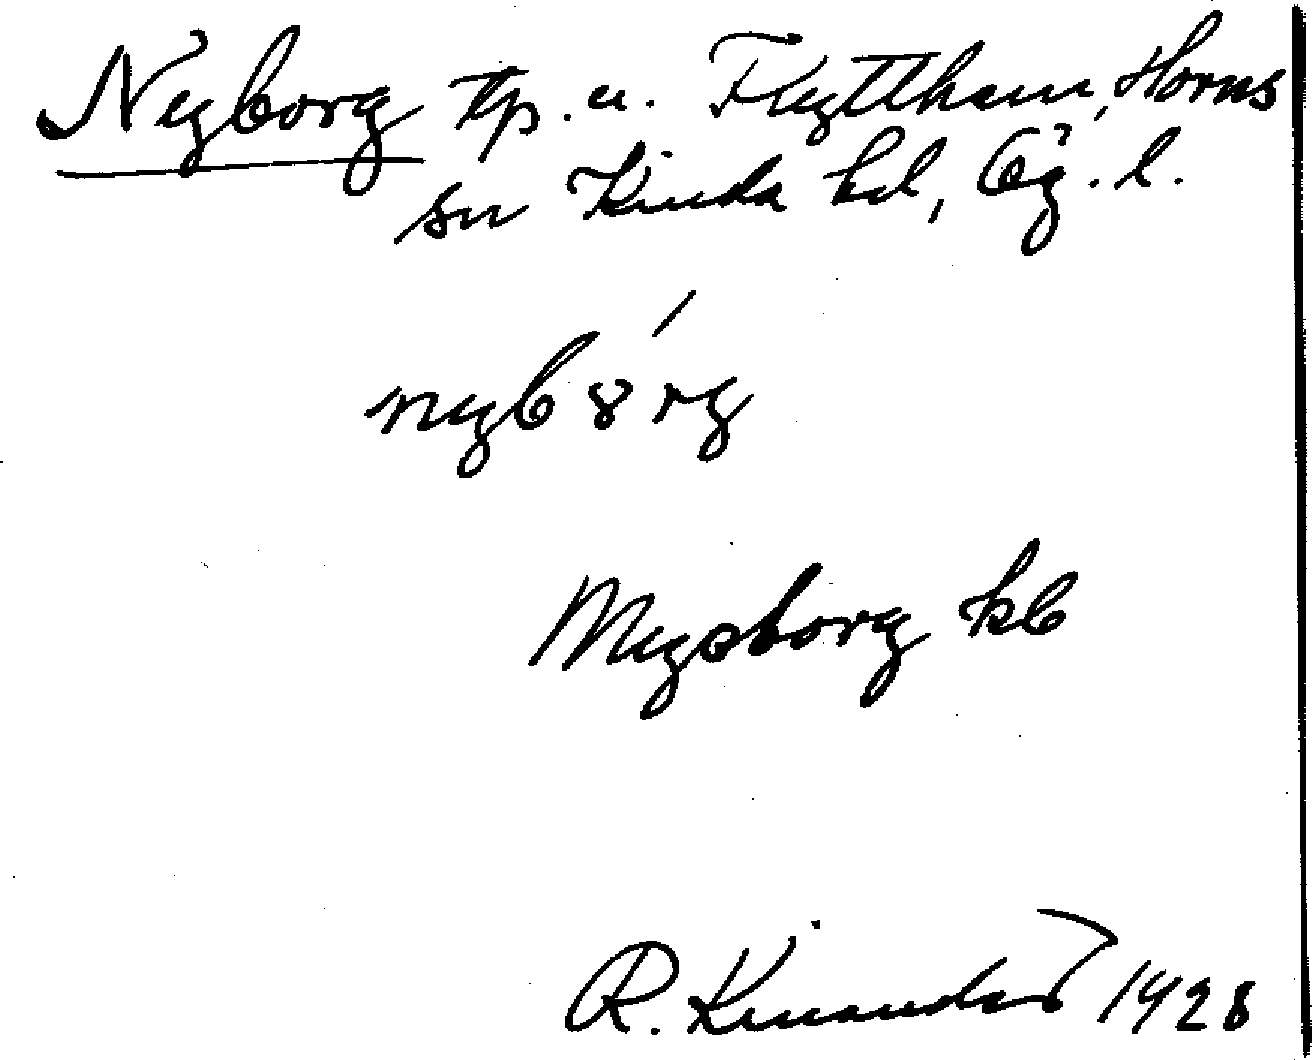 Nyborg tp. u. Flyttham, Horns
sn Kinda hd, Ög. l.
nyb8́rg
Mysborg kb
R. Kinander 1928